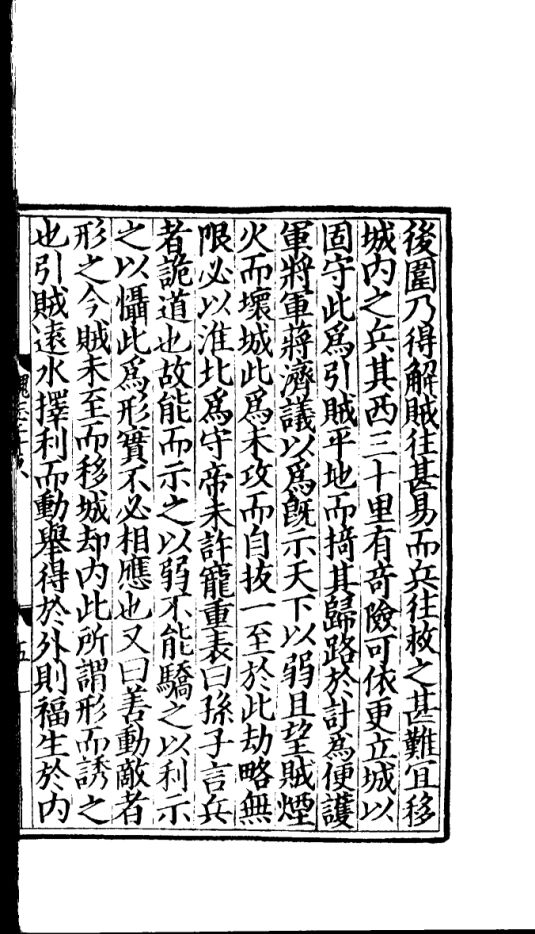 後圍乃得解賊往甚易而兵往救之甚難宜移
城內之兵其西三十里有竒險可依更立城以
固守此爲引賊平地而掎其歸路於計爲便護
軍將軍蔣濟議以爲旣示天下以弱且望賊煙
火而壞城此爲未攻而自拔一至於此劫略無
限必以淮北爲守帝未許寵重表曰孫子言兵
者詭道也故能而示之以弱不能驕之以利示
之以懾此爲形實不必相應也又曰善動敵者
形之今賊未至而移城却內此所謂形而誘之
也引賊遠水擇利而動舉得於外則福生於內
五